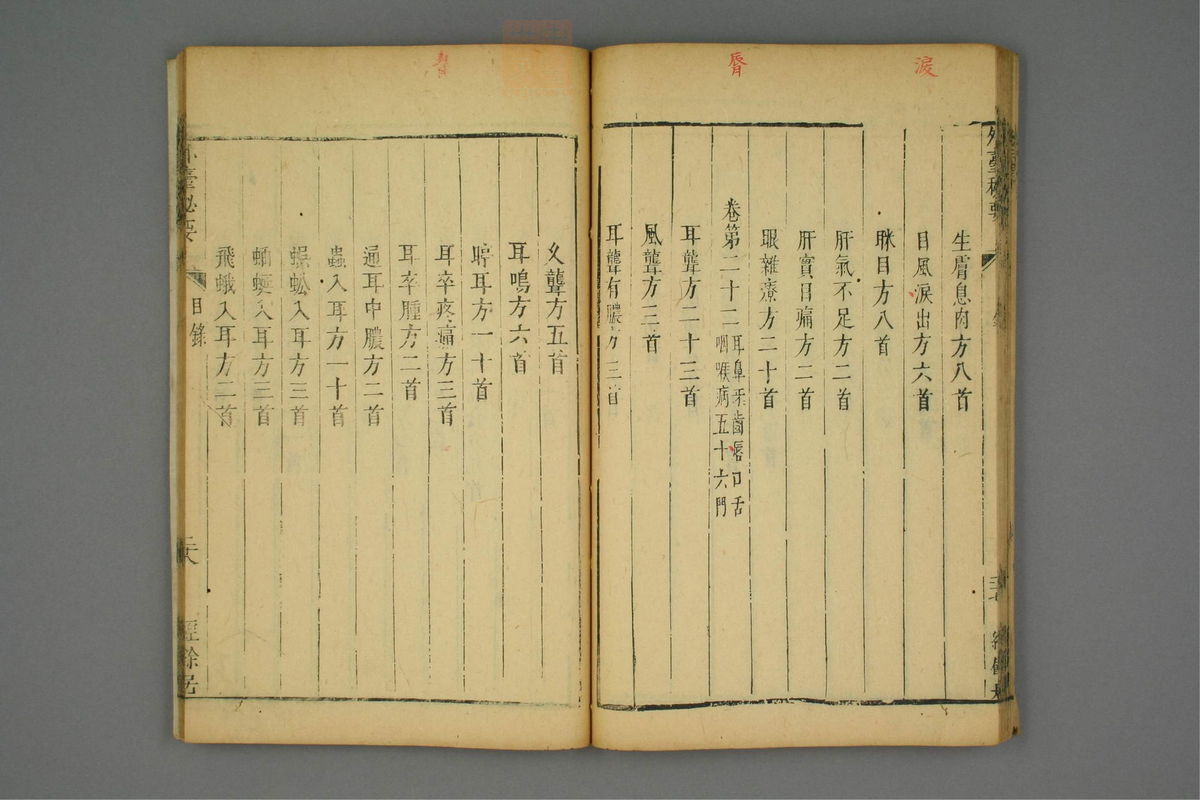 淚
脣
外臺秘要
生膚息肉方八首
目風淚出方六首
眯目方八首
肝氣不足方二首
肝實目痛方二首
眼雜療方二十首
卷第二十二
耳鼻牙齒唇口舌
咽喉病五十六門
耳聾方二十三首
風聾方三首
耳聾有膿方三首
久聾方五首
耳鳴方六首
聤耳方一十首
耳卒疼痛方三首
耳卒腫方二首
通耳中膿方二首
蟲入耳方一十首
蜈蚣入耳方三首
蚰蜒入耳方三首
飛蛾入耳方二首
外臺秘要
目錄
經餘居